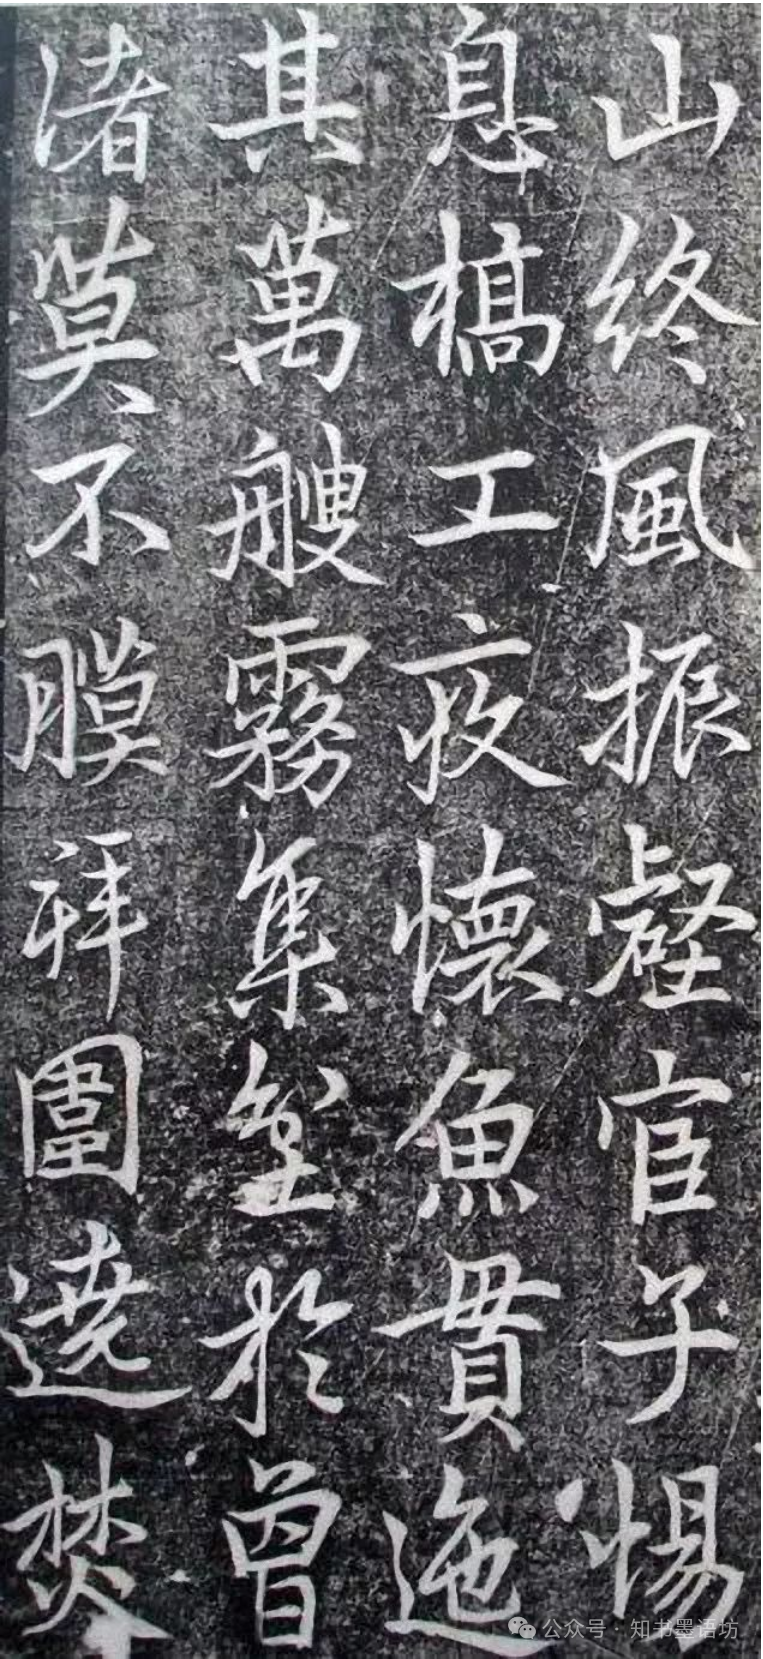 山終風振壑宦子惕
息槁工疚懷魚貫迤
其萬艘霧集坌於曾
渚莫不膜拜圍遶焚
公众号·知书墨语坊